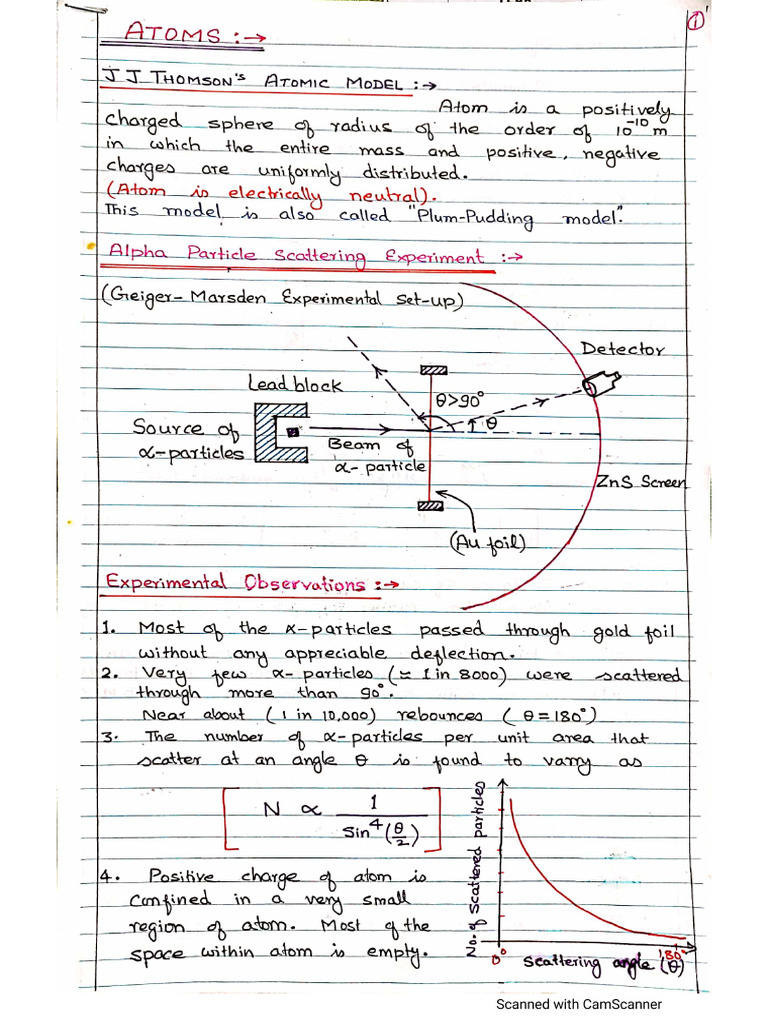 ①
ATOMS :→
J J THOMSON'S ATOMIC MODEL :→
Atom is a positively
charged sphere of radius of the order of 10⁻¹⁰ m
in which the entire mass and positive, negative
charges are uniformly distributed.
(Atom is electrically neutral).
This model is also called "Plum-Pudding model".
Alpha Particle Scattering Experiment :→
(Geiger-Marsden Experimental Set-up)
Detector
Lead block
θ>90°
θ
Source of
α-particles
Beam of
α-particle
ZnS Screen
(Au foil)
Experimental Observations :→
1. Most of the α-particles passed through gold foil
without any appreciable deflection.
2. Very few α-particles (≃ 1 in 8000) were scattered
through more than 90°.
Near about (1 in 10,000) rebounces (θ=180°)
3. The number of α-particles per unit area that
scatter at an angle θ is found to varry as
[N ∝ 1 / sin⁴(θ/2)]
No. of scattered particles
4. Positive charge of atom is
confined in a very small
region of atom. Most of the
space within atom is empty.
0°
180°
scattering angle (θ)
Scanned with CamScanner